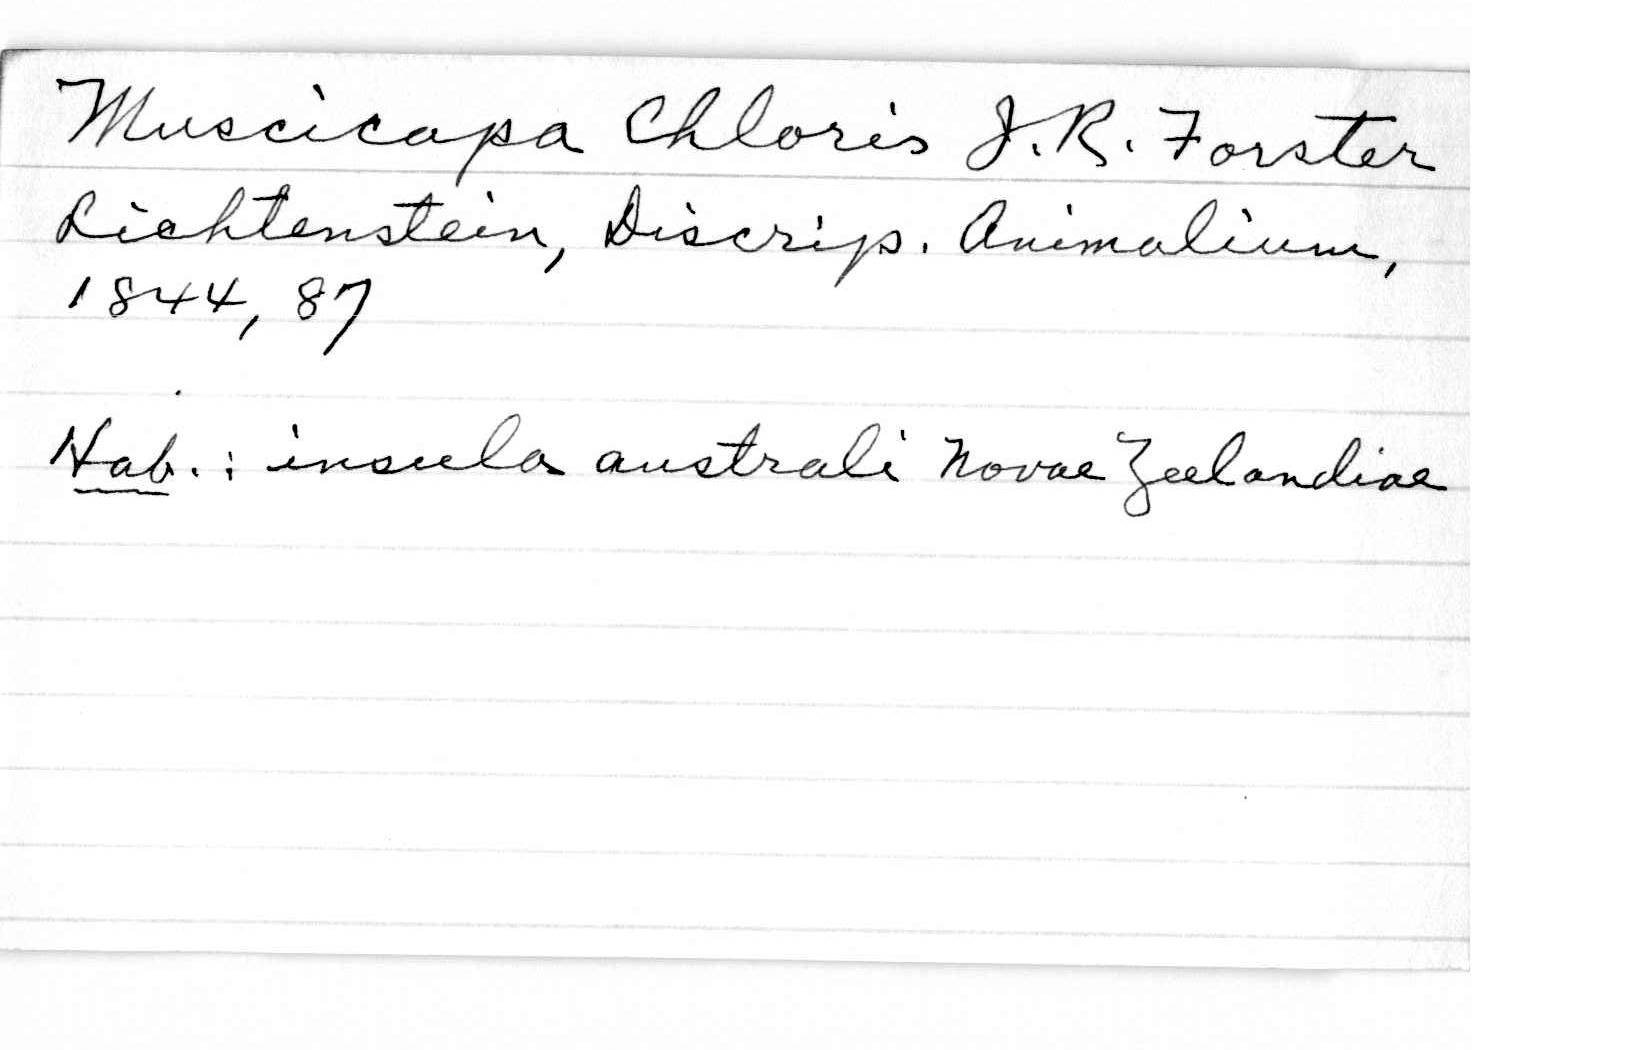 Muscicapa Chloris J.R. Forster
Lichtenstein, Discrip. Animalium,
1844, 87
Hab.: insula australi Novae Zeelandiae